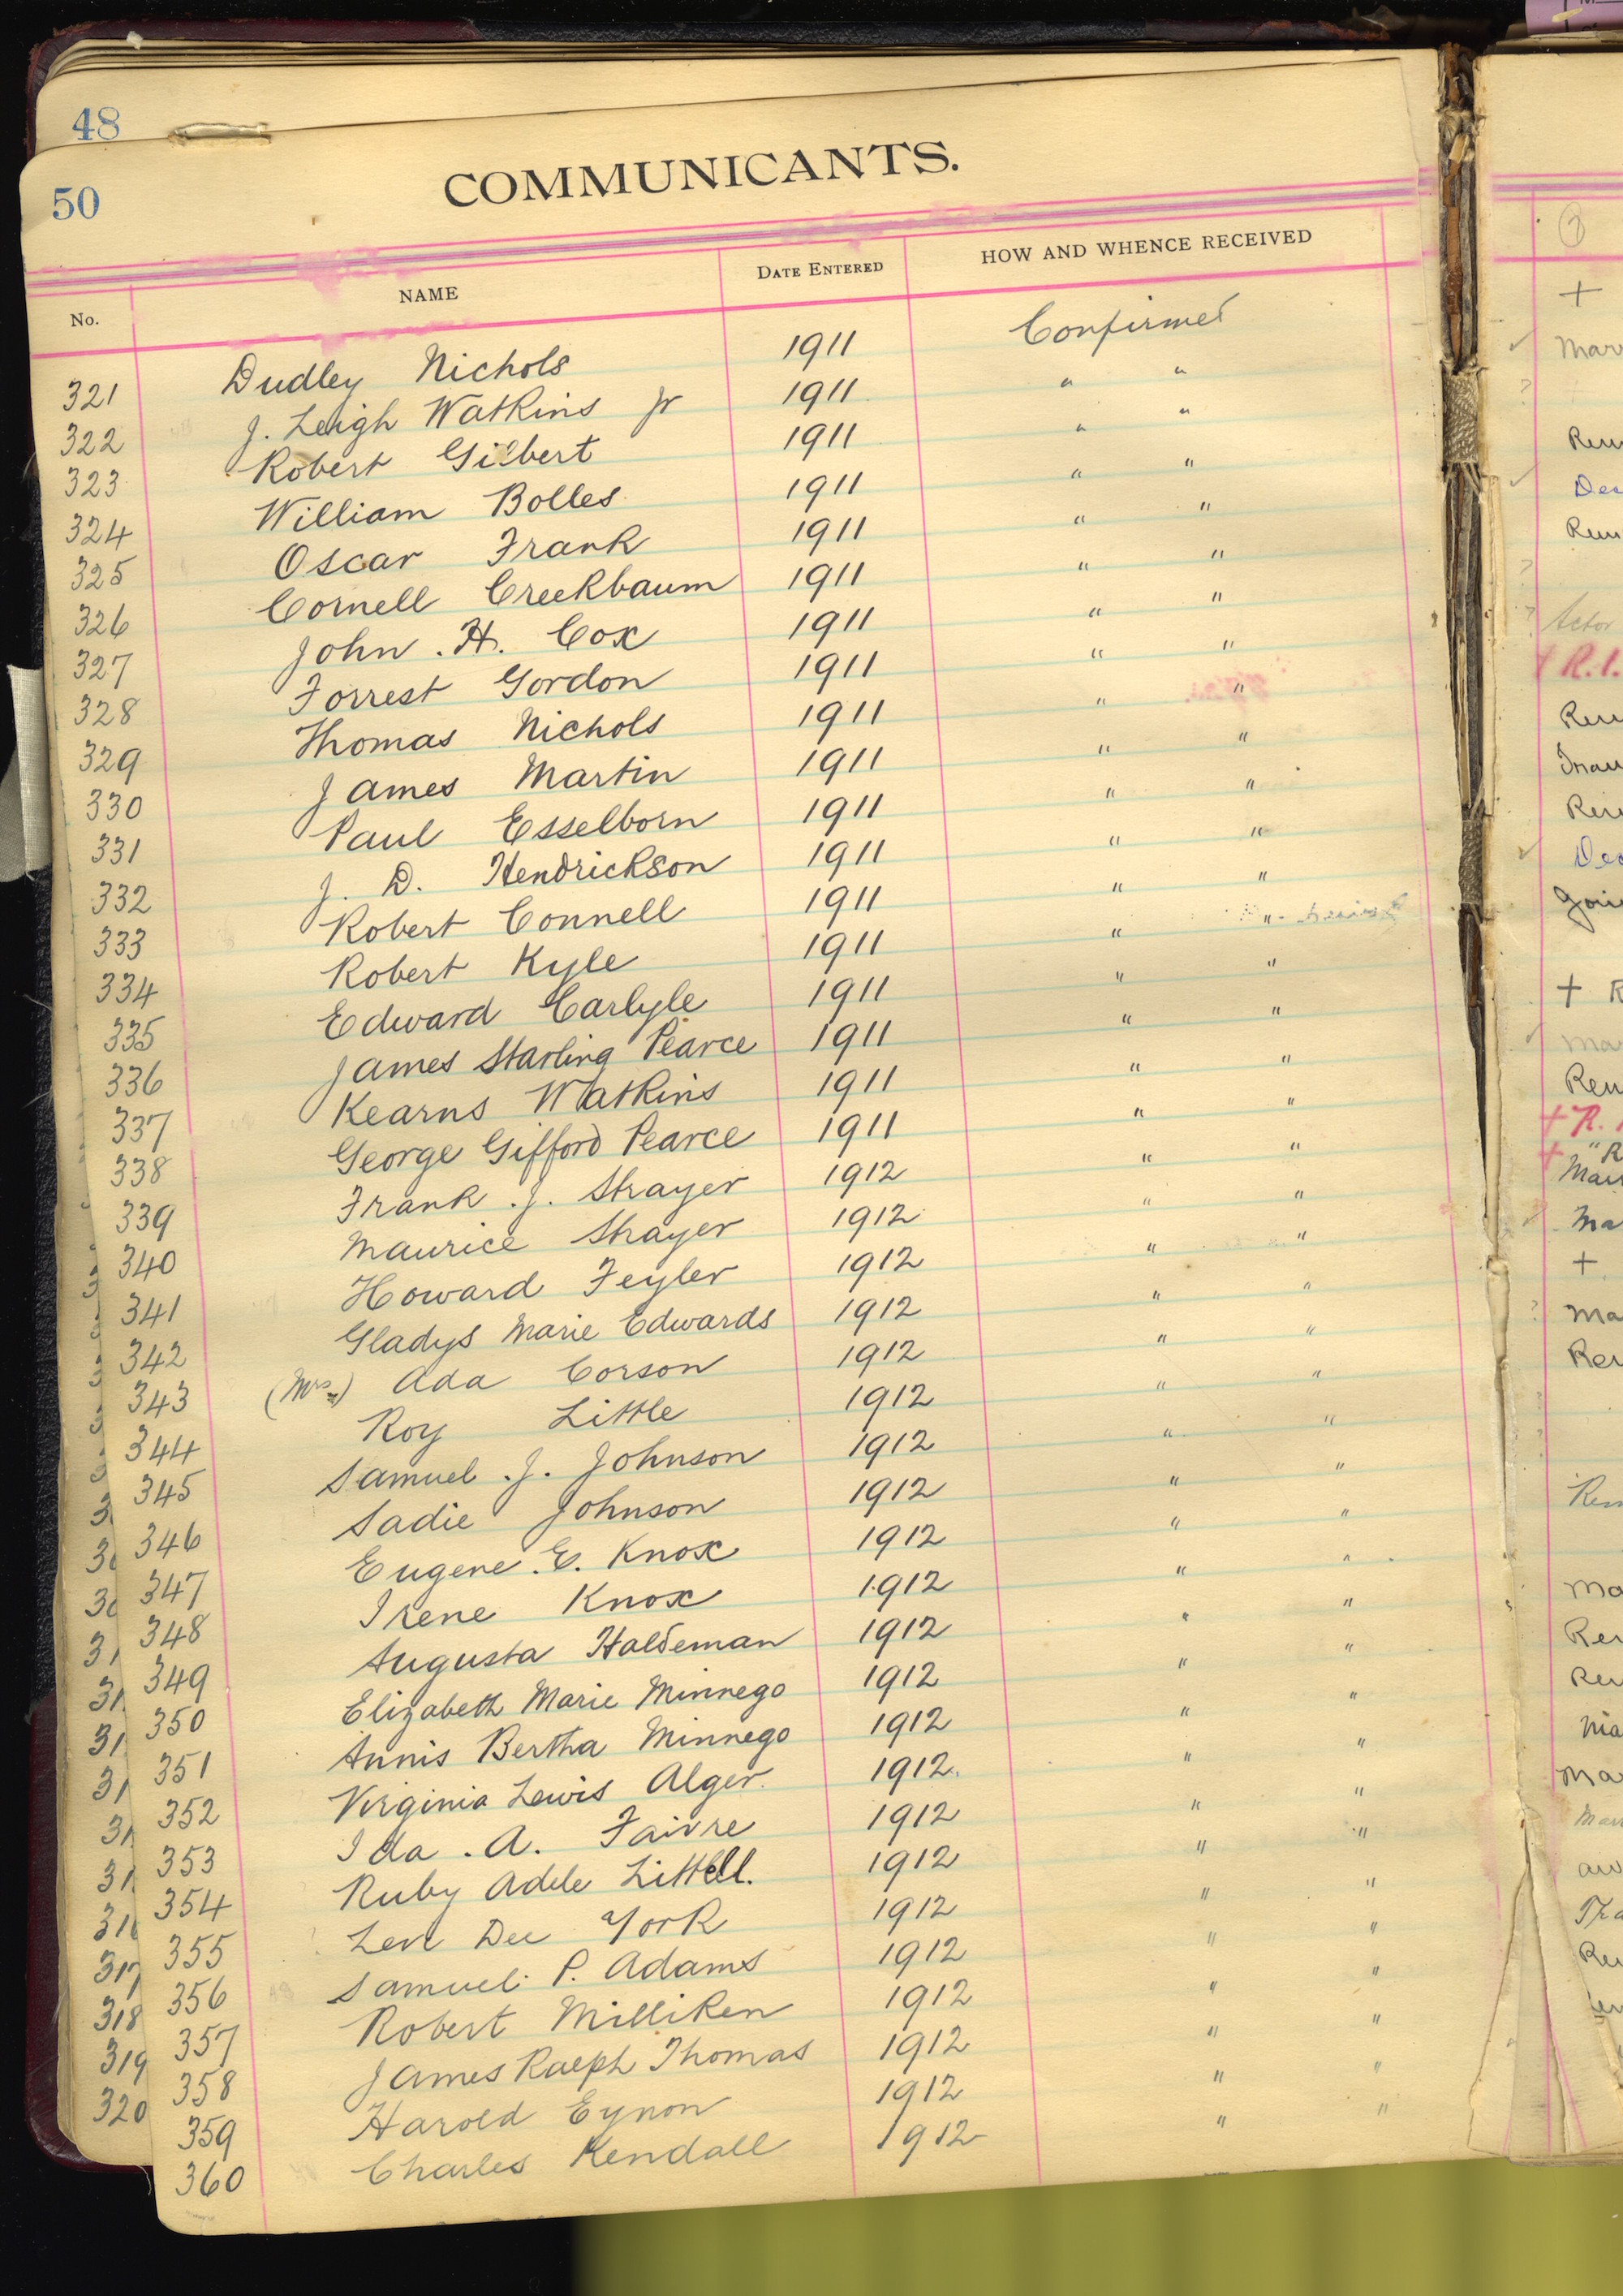 48
50
COMMUNICANTS.
No. NAME DATE ENTERED HOW AND WHENCE RECEIVED
321 Dudley Nichols 1911 Confirmed
322 J. Leigh Watkins Jr 1911 " "
323 Robert Gilbert 1911 " "
324 William Bolles 1911 " "
325 Oscar Frank 1911 " "
326 Cornell Creekbaum 1911 " "
327 John . H. Cox 1911 " "
328 Forrest Gordon 1911 " "
329 Thomas Nichols 1911 " "
330 James Martin 1911 " "
331 Paul Esselborn 1911 " "
332 J. D. Hendrickson 1911 " "
333 Robert Connell 1911 " "
334 Robert Kyle 1911 " "
335 Edward Carlyle 1911 " "
336 James Starling Pearce 1911 " "
337 Kearns Watkins 1911 " "
338 George Gifford Pearce 1911 " "
339 Frank . J. Strayer 1912 " "
340 Maurice Strayer 1912 " "
341 Howard Feyler 1912 " "
342 Gladys Marie Edwards 1912 " "
343 (Mrs.) Ada Corson 1912 " "
344 Roy Little 1912 " "
345 Samuel . J. Johnson 1912 " "
346 Sadie Johnson 1912 " "
347 Eugene . E. Knox 1912 " "
348 Irene Knox 1912 " "
349 Augusta Haldeman 1912 " "
350 Elizabeth Marie Minnego 1912 " "
351 Annis Bertha Minnego 1912 " "
352 Virginia Lewis Alger. 1912. " "
353 Ida . A. Faivre 1912 " "
354 Ruby Adele Littell. 1912 " "
355 Dee York 1912 " "
356 Samuel P. Adams 1912 " "
357 Robert Milliken 1912 " "
358 James Ralph Thomas 1912 " "
359 Harold Eynon 1912 " "
360 Charles Kendall 1912 " "
317
318
319
320